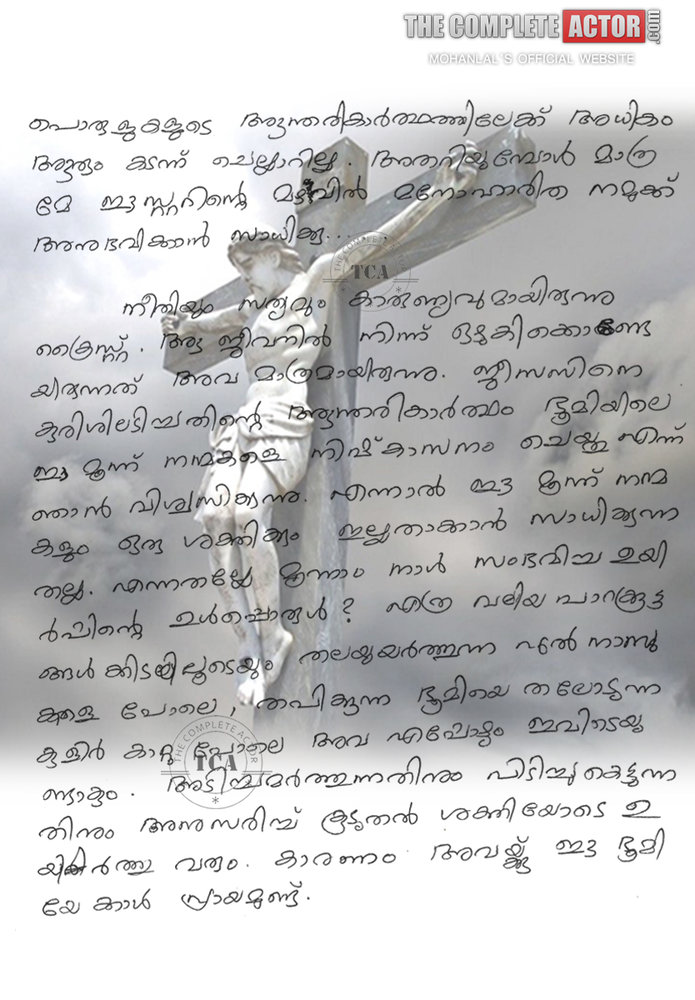 THE COMPLETE ACTOR.com
MOHANLAL'S OFFICIAL WEBSITE
പൊരുളുകളുടെ ആന്തരികാർത്ഥത്തിലേക്ക് അധികം
ആരും കടന്ന് ചെല്ലാറില്ല. അതറിയുമ്പോൾ മാത്ര
മേ ഈസ്റ്ററിന്റെ മഴവിൽ മനോഹാരിത നമുക്ക്
അനുഭവിക്കാൻ സാധിക്കൂ...
THE COMPLETE ACTOR
TCA
നീതിയും സത്യവും കാരുണ്യവുമായിരുന്നു
ക്രൈസ്റ്റ്. ആ ജീവനിൽ നിന്ന് ഒഴുകിക്കൊണ്ടേ
യിരുന്നത് അവ മാത്രമായിരുന്നു. ജീസസിനെ
കുരിശിലടിച്ചതിന്റെ ആന്തരികാർത്ഥം ഭൂമിയിലെ
ഈ മൂന്ന് നന്മകളെ നിഷ്കാസനം ചെയ്തു എന്ന്
ഞാൻ വിശ്വസിക്കുന്നു. എന്നാൽ ഈ മൂന്ന് നന്മ
കളും ഒരു ശക്തിക്കും ഇല്ലതാക്കാൻ സാധിക്കുന്ന
തല്ല. എന്നതല്ലേ മൂന്നാം നാൾ സംഭവിച്ച ഉയി
ർപ്പിന്റെ ഉൾപ്പൊരുൾ? എത്ര വലിയ പാറക്കൂട്ട
ങ്ങൾക്കിടയിലൂടെയും തലയുയർത്തുന്ന പുൽ നാമ്പു
കളെ പോലെ, തപിക്കുന്ന ഭൂമിയെ തലോടുന്ന
കുളിർ കാറ്റു പോലെ അവ എപ്പോഴും ഇവിടെയു
ണ്ടാകും. അടിച്ചമർത്തുന്നതിനും പിടിച്ചുകെട്ടുന്ന
THE COMPLETE ACTOR
TCA
തിനും അനുസരിച്ച് കൂടുതൽ ശക്തിയോടെ ഉ
യിർത്തു വരും. കാരണം അവയ്ക്കു ഈ ഭൂമി
യേക്കാൾ പ്രായമുണ്ട്.